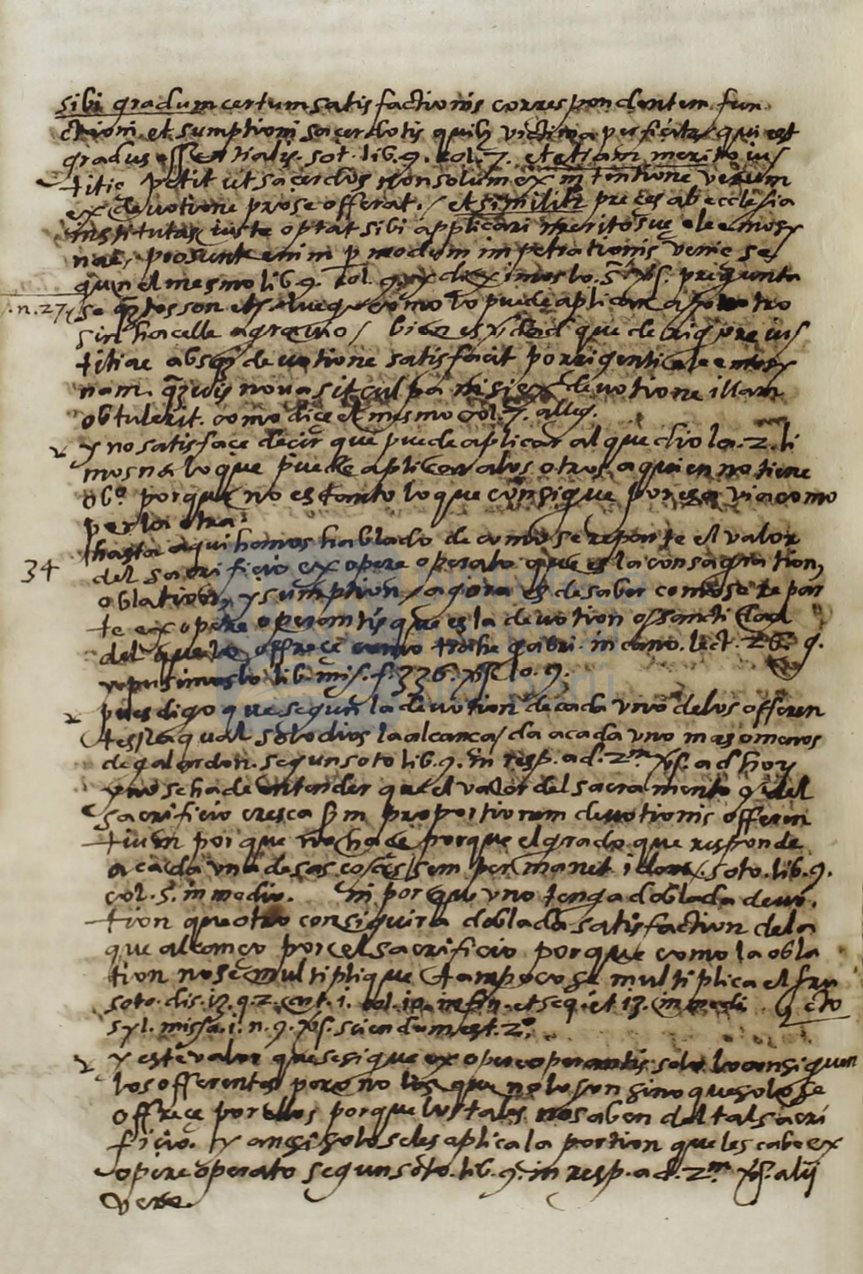 sibi gradum certum satisfactionis correspondentem fun
ctioni et sumptioni sacerdotis quib victima perficitr qui est
gradus essentialis. sot. lib. 9. col. 7. et etiam merito ius
titie petit ut sacerdos non solum ex intentione verum
ex devotione pro se offerat. / et similiter preces ab ecclesia
institutas iuste optat sibi applicari meritosue eleemosy
nae, prosunt enim p modum impetrationis
el mesmo lib. 9. col. 9. pregunta
.n.27. se son como lo puede aplicar a otro
sin hacelle agravio / bien es verdad que de rigore ius
titiae absq devotione satisfacit porrigenti eleemosy
nam. nova sit culpa nisi ex devotione illam
obtulerit. como diçe el mismo col. 7. alleg.
y no satisface decir que puede aplicar al que dio la .2. li
mosna lo que puede aplicar a los otros a quien no tiene
obo. porque no es tanto lo que consigue por esa via como
por la otra.
34 hasta aqui hemos hablado de como se reparte el valor
del sacrificio ex opere operato que es la consagration,
oblation, y sumption / agora es de saber como se repar
te ex opere operantis que es la devotion o sanctidad
del que lo offreçe como trahe gabri. in cano. lect. 26. 9.
y pusimoslo lib. mis. f. 336. lo. 9.
pues digo que segun la devotion de cada uno de los offeren
tes, la qual solo dios la alcança / da a cada uno mas o menos
de galardon. segun soto lib. 9. in resp. ad. 2m ad hoc
y no se ha de entender que el valor del sacramento y del
sacrificio cresca proportionem devotionis offeren
tium porque no hace porque el grado que responde
a cada una de sas cosas semper manet idem. soto. lib. 9.
col. 5. in medio. ni porque uno tenga doblada devo
tion que otro consiguira doblada satisfaction de la
que alcanço por el sacrificio porque como la obla
tion no se multiplique tampoco se multiplica el fru
cto soto. dis. 13. q. 2. art. 1. col. 10. in fin. et seq. et 13. in medi.
syl. missa. 1. n. 9. sciendum est. 2o.
y este valor que se sigue ex opere operantis solo lo consiguen
los offerentes pero no los que no lo son sino que solo se
offreçe por ellos porque los tales no saben del tal sacri
ficio. y ansi solo se les aplica la portion que les cabe ex
opere operato segun soto. lib. 9. in resp. ad. 2m alij
vero.